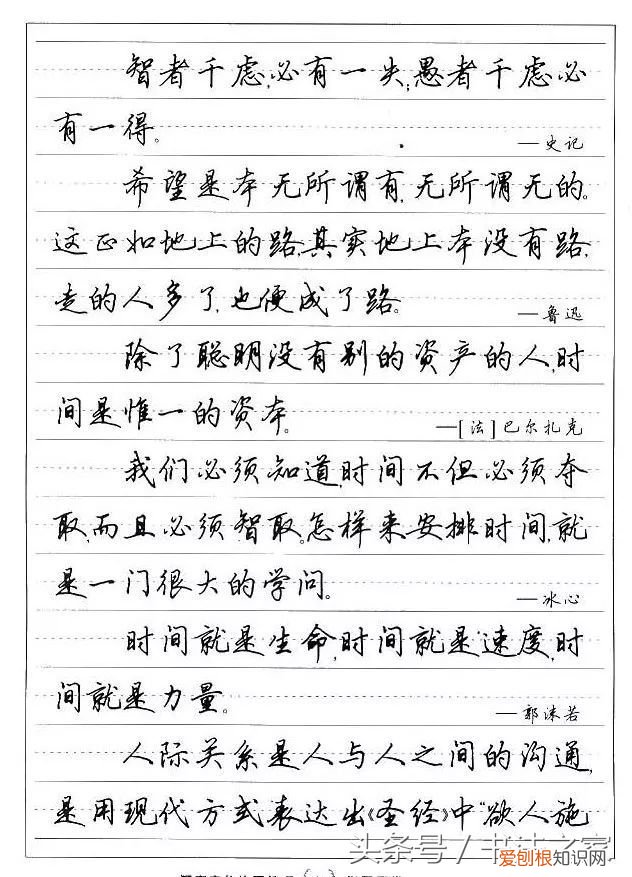 智者千虑,必有一失;愚者千虑必
有一得。
—史记
希望是本无所谓有,无所谓无的。
这正如地上的路,其实地上本没有路,
走的人多了,也便成了路。
—鲁迅
除了聪明没有别的资产的人,时
间是惟一的资本。
—[法]巴尔扎克
我们必须知道,时间不但必须夺
取,而且必须智取。怎样来安排时间,就
是一门很大的学问。
—冰心
时间就是生命,时间就是速度,时
间就是力量。
—郭沫若
人际关系是人与人之间的沟通,
是用现代方式表达出《圣经》中“欲人施
头条号/书法之家
爱刨根知识网
www.baogen.com